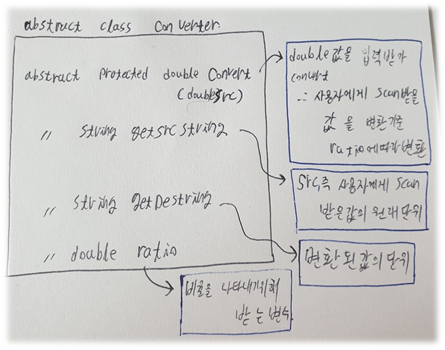 abstract class Converter
abstract protected double Convert
(double src)
〃 string getsrcstring
〃 string getDestring
〃 double ratio
double 값을 입력받아
convert
∴ 사용자에게 scan받을
값을 변환기준
ratio에따라 변환
src,즉 사용자에게 scan
받을값의 원래단위
변환된 값의 단위
비율을 나타내기위해
받는변수